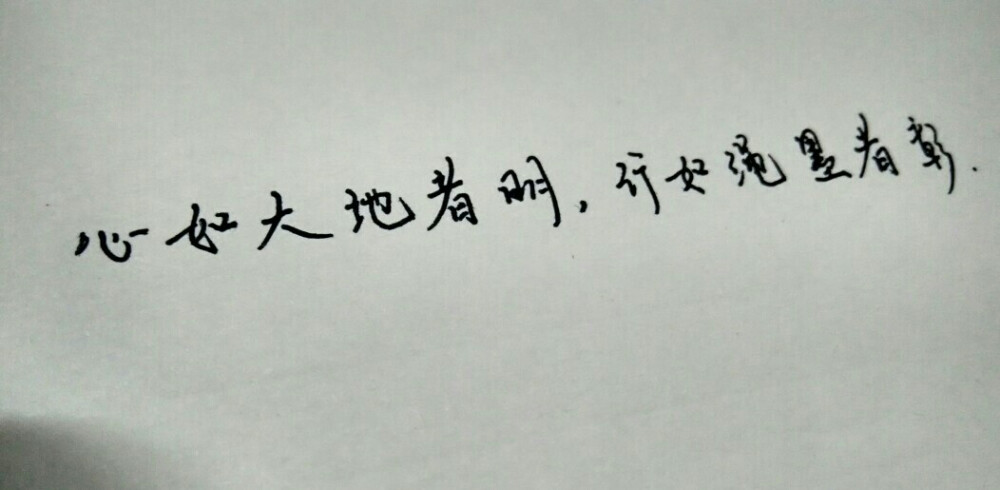 心如大地者明，行如绳墨者彰.